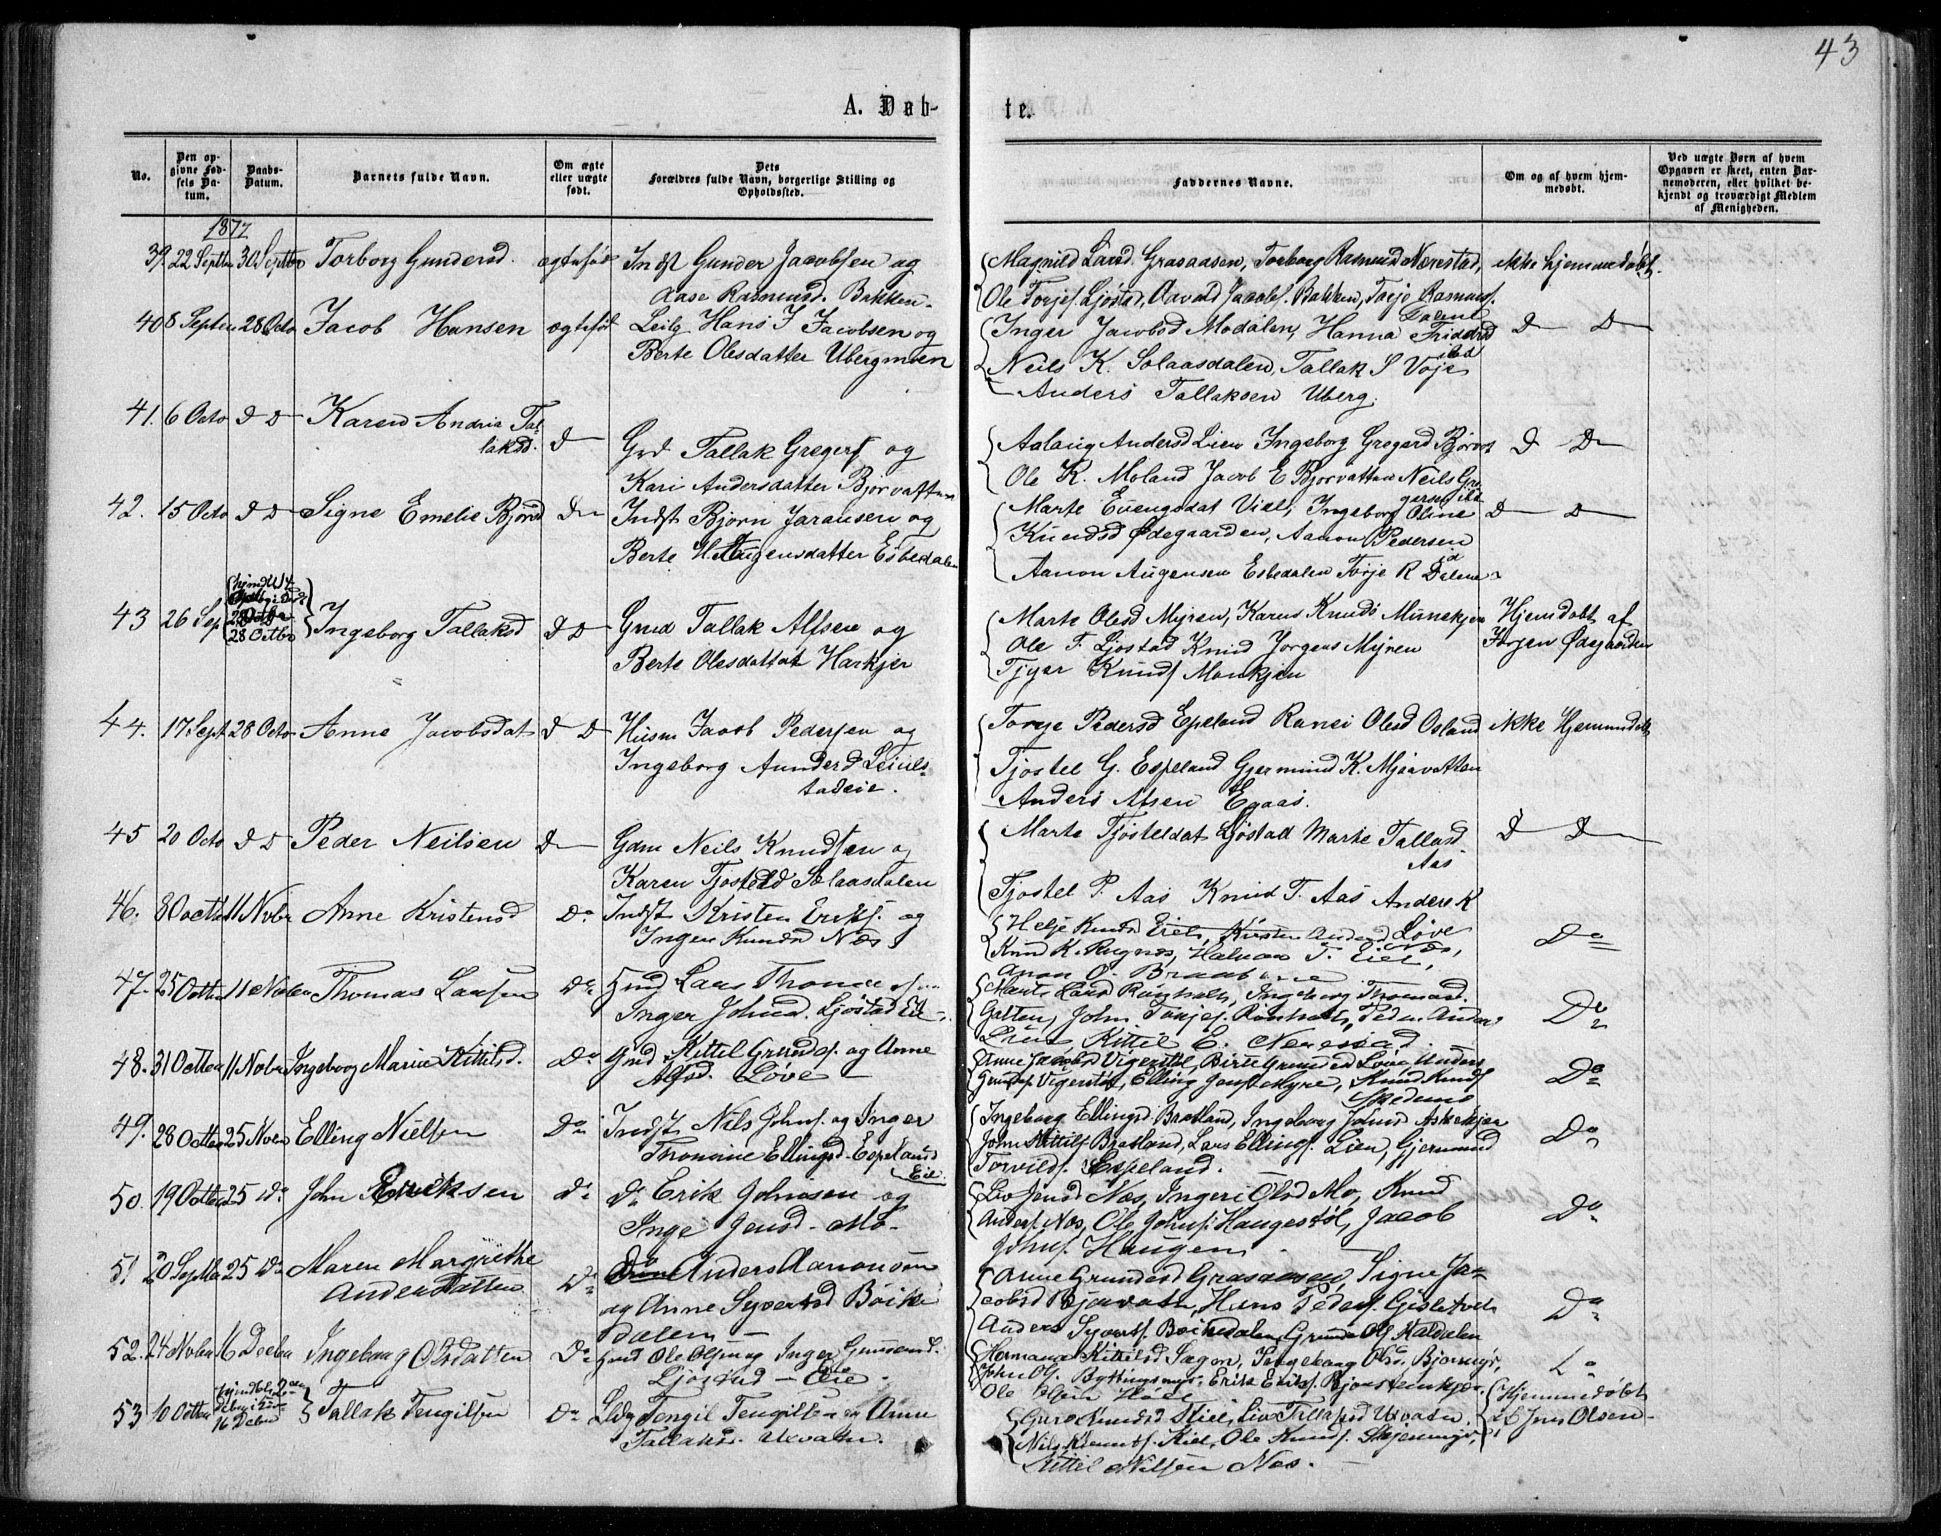 43
A. Døb-
te.
No.
Den op-
givne Fød-
sels Da-
tum.
Daabs-
Datum.
Barnets fulde Navn.
Om ægte
eller uægte
født.
Dets
Forældres fulde Navn, borgerlige Stilling og
Opholdssted.
Faddernes Navne.
Om og af hvem hjem-
medøbt.
Ved uægte Børn af hvem
Opgaven er skeet, enten Bar-
nemoderen, eller hvilket be-
kjendt og troværdigt Medlem
af Menigheden.
1877
39. 22 Septbr 30 Septbr Torborg Gundersd. ægtefød Indst Gunder Jacobsen og
Aase Rasmusd. Bakken.
Magnild Larsd Grasaasen, Torborg Rasmusd Nærestad, ikke hjemmedøbt.
Ole Torjes. Ljostad, Aavald Jacobs. Bakken, Torje Rasmus.
Dalene
40 8 Septem 28 Octo Jacob Hansen ægtefød Leilg Hans J Jacobsen og
Berte Olesdatter Ubergmoen
Inger Jacobsd Modalen, Hanna D D
Neils K. Solaasdalen, Tallak S Voje
Anders Tallaksen Uberg.
41. 6 Octo D D Karen Andria Tal-
laksd. D Grd Tallak Gregers og
Kari Andersdatter Bjorvatten
Aslaug Andersd Lien Ingeborg Gregersd Bjorv D D
Ole K. Moland Jacob E Bjorvatten Neils Gre
gersen
42. 15 Octo D D Signe Emelie Bjørnsd D Indst Bjørn Jaransen og
Berte Augensdatter Esbedalen
Marte Evengsdat Viel, Ingeborg Oline D D
Knudsd Ødegaarden, Aanon Pedersen
Aanon Augensen Esbedalen Torje R Dalene
43 26 Sep
28 Octbr Ingeborg Tallaksd D D Grd Tallak Alfsen og
Berte Olesdattat Harkjer
Marte Olesd Myren, Karen Knuds Hjemdøbt af
Ole T. Ljostad Knud Jorgens Myren Jorgen Ødegaarden
Knuds Monkjen
44. 17 Sept 28 Octo Anne Jacobsdat D D Husm Jacob Pedersen og
Ingeborg Aundersd
tadeie.
Torje Pedersd Epeland Ranei Olesd Osland ikke Hjemmdøbt
Tjostel G. Espeland Gjermund K. Mjaavatten
Anders Alfsen Egaas.
45 20 Octo D D Peder Neilsen D Gdm Neils Knudsen og
Karen Tjosteld Solaasdalen
Marte Tjosteldat Ljostad Marte Tallasd D D
Aas
Tjostel P. Aas Knud T. Aas Anders K
46. 8 Octbr 11 Novbr Anne Kristensd Do Indst Kristen Eriks. og
Inger Knudsd Næs
Helje Knudsd Eiel, Kirsten Andersd Løve Do
Knud K. Rugnæs, Halvor T. Eiel, Næs,
47. 25 Octbr 11 Novbr Thomas Larsen Do Grd Lars Thomas
Inger Johnsd. Ljostad Eie
Marte Larsd Rønholt, Ingeborg Thomasd. Do
Galten, John Torjes. Rønholt, Peder Anders
Kittel E. Nærestad.
48. 31 Octbr 11 Novbr Ingeborg Marie Kittilsd. Do Grd Kittel Grunds. og Anne
Alfsd. Løve
Anne Jacobsd Vigerstøl, Birte Grundesd Løve, Anders Do
Vigerstøl, Elling Jens. Myre, Knud Knuds.
49. 28 Octbr 25 Novbr Elling Nielsen Do Indst Nils Johns. og Inger
Thomine Ellingsd. Espelands
Eie.
Ingeborg Ellingsd. Bratland, Ingeborg Johnsd Askekjær Do
John Kittils. Bratland, Lars Ellings. Lien, Gjermund
Torvilds. Espeland.
50. 19 Octbr 25 Do John Eriksen Do Do Erik Johnsen og
Inge Jensd. Mo
Liv Jensd Næs, Ingeri Olsd Mo, Knud Do
Anders. Næs, Ole Johns. Haugestøl, Jacob
Johns. Haugen
51 20 Septbr 25 Do Maren Margrethe
Andersdatter Do Do Anders Aanonsen
og Anne Syvertsd Bøike
dalen
Anne Grundesd Grasaasen, Signe Ja- Do
cobsd Bjorvatn, Hans Peders. Gislefvel
Anders Syverts. Boikedalen, Grunde Ols. Maldalen
52. 24 Novbr 16 Decbr Ingeborg Olsdatter Do Grd Ole Olsen og Inger Gundersd.
Ljostad Eie
Hermana Kittilsd Sagen, Ingeborg Olsd. Do
John Ol. Erik Eriks.
Ole Olsen
53 10 Octbr
16 Decbr Tallak Tengilsen Do Ldg Tengil Tengilsen og Anne
Tallaksd. Uvatn.
Guro Knudsd Kiel, Liv Tallaksd Uvatn. Hjemmedøbt
Nils Knuds. Kiel, Ole Knuds. af Jens Olsen
Kittel Nilsen Næs.